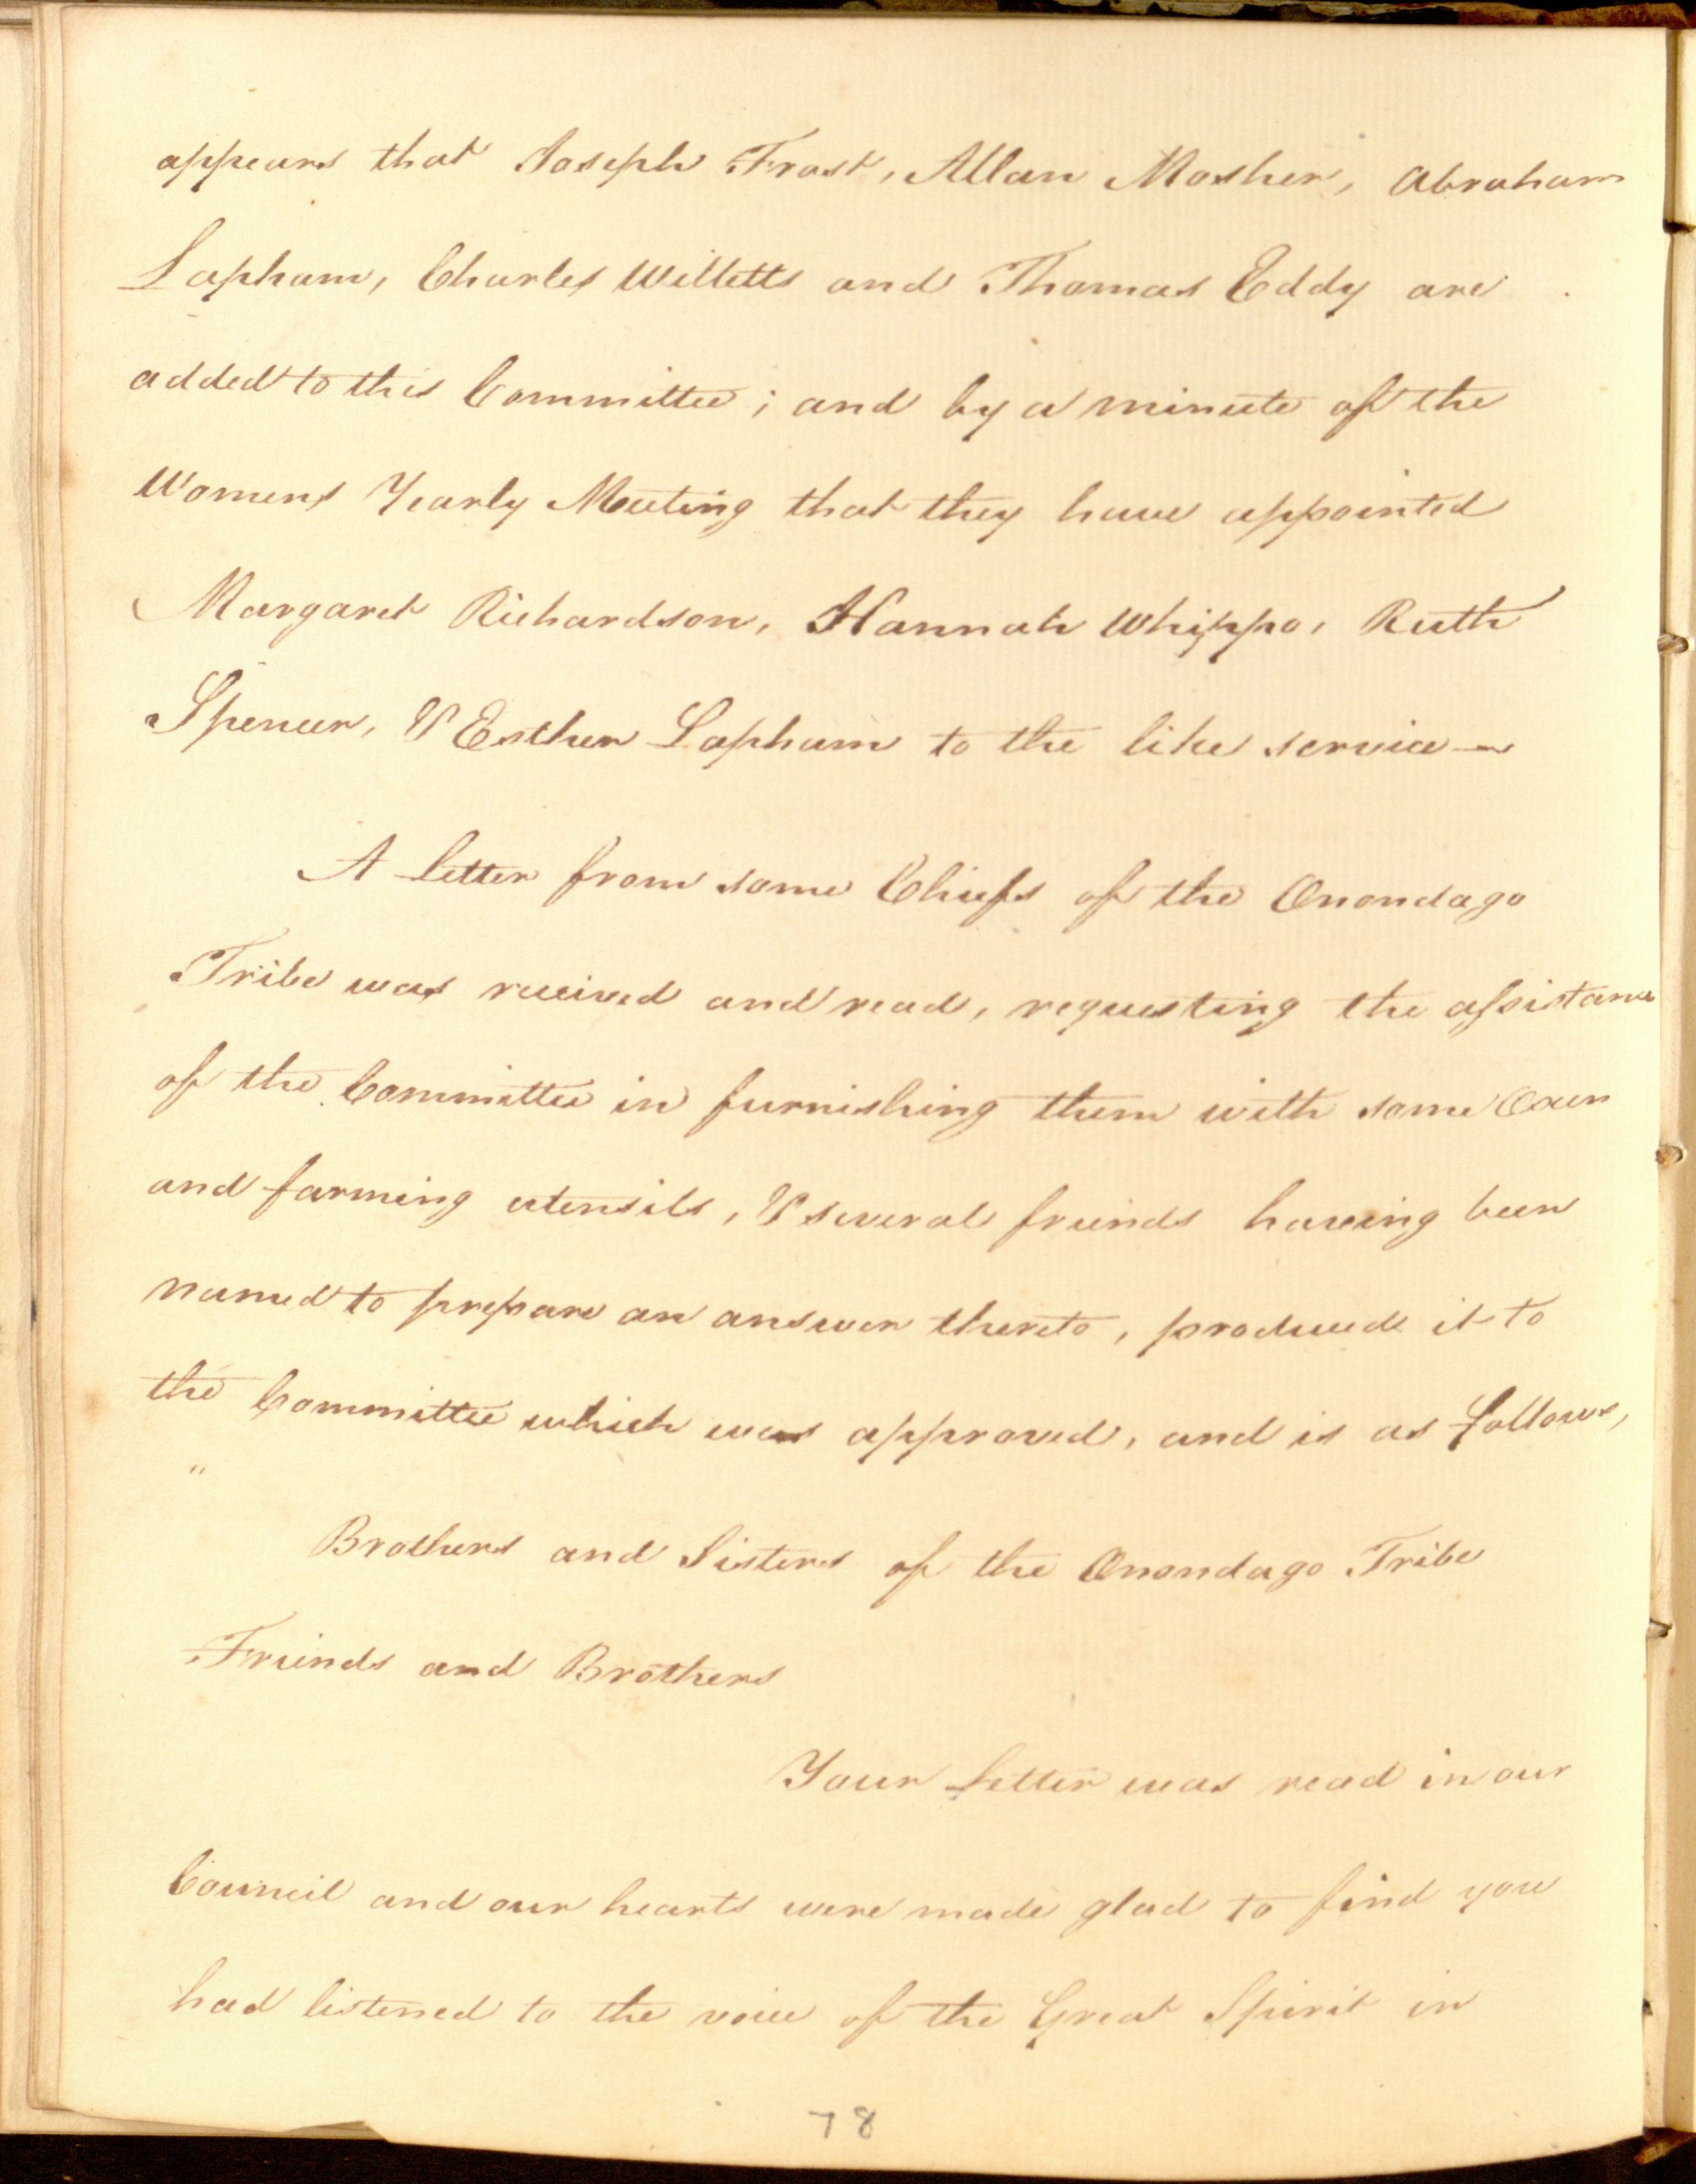 appears that Joseph Frost, Allan Mosher, Abraham
Lapham, Charles Willetts and Thomas Eddy are
added to this Committee; and by a minute of the
Womens Yearly Meeting that they have appointed
Margaret Richardson, Hannah Whippo, Ruth
Spencer, & Esther Lapham to the like service —
A letter from some Chiefs of the Onondago
Tribe was received and read, requesting the assistance
of the Committee in furnishing them with some Oxen
and farming utensils, & several friends having been
named to prepare an answer thereto, produced it to
the Committee which was approved, and is as follows,
"
Brothers and Sisters of the Onondago Tribe
Friends and Brothers
Your letter was read in our
Council and our hearts were made glad to find you
had listened to the voice of the Great Spirit in
78